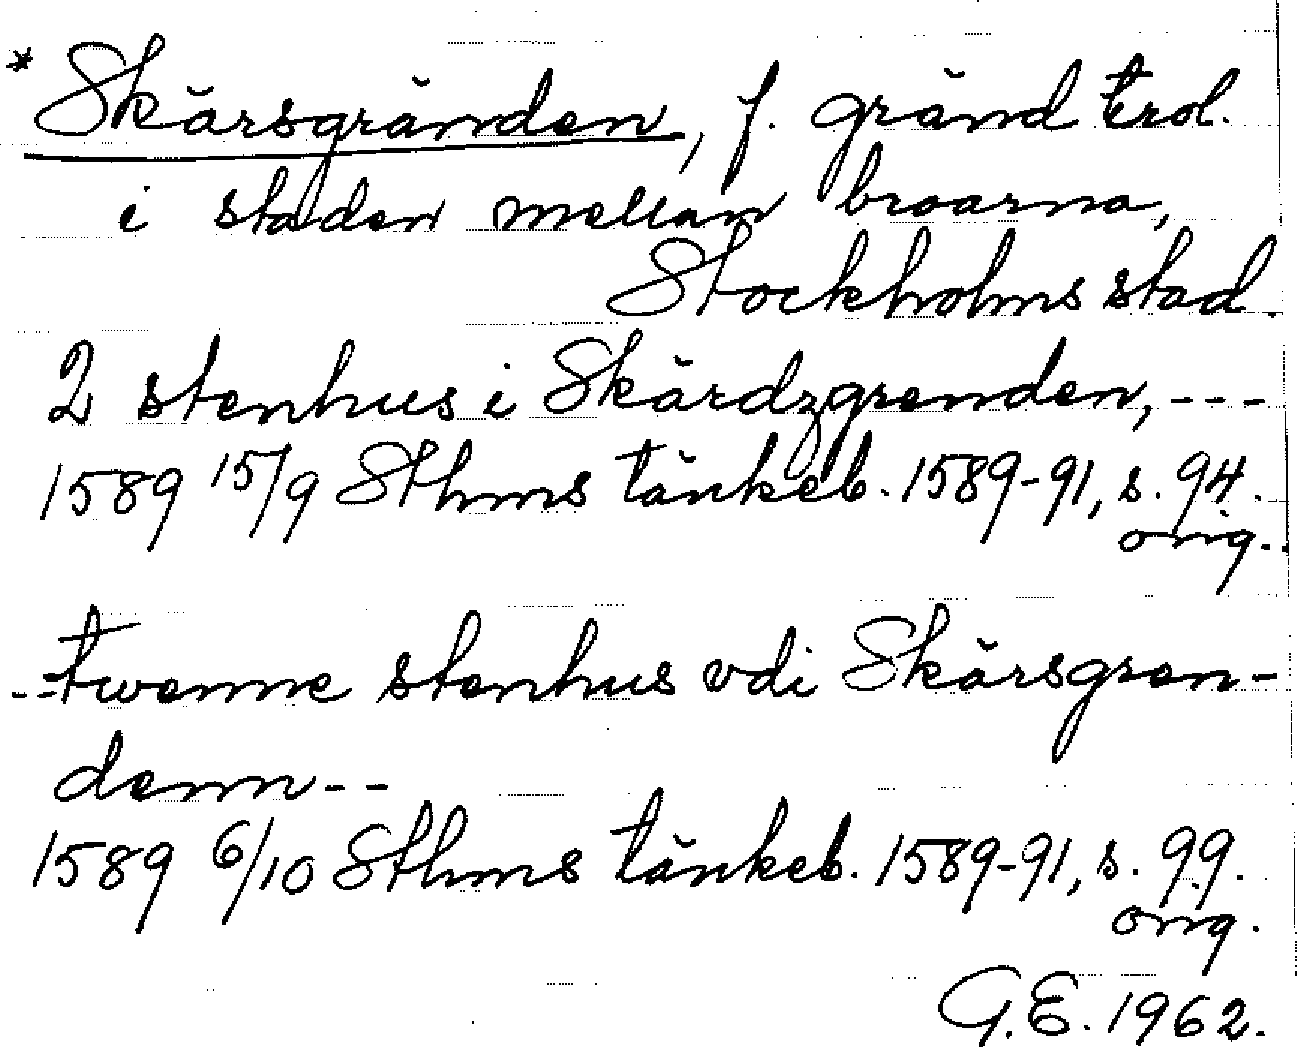 * Skärsgränden, f. gränd trol.
i staden mellan broarna,
Stockholms stad.
2 stenhus i Skärdzgrenden, ---
1589 15/9 Sthms tänkeb. 1589-91, s. 94.
orig.
--twenne stenhus vdi Skärsgren-
denn--
1589 6/10 Sthms tänkeb. 1589-91, s. 99.
orig.
G.E. 1962.